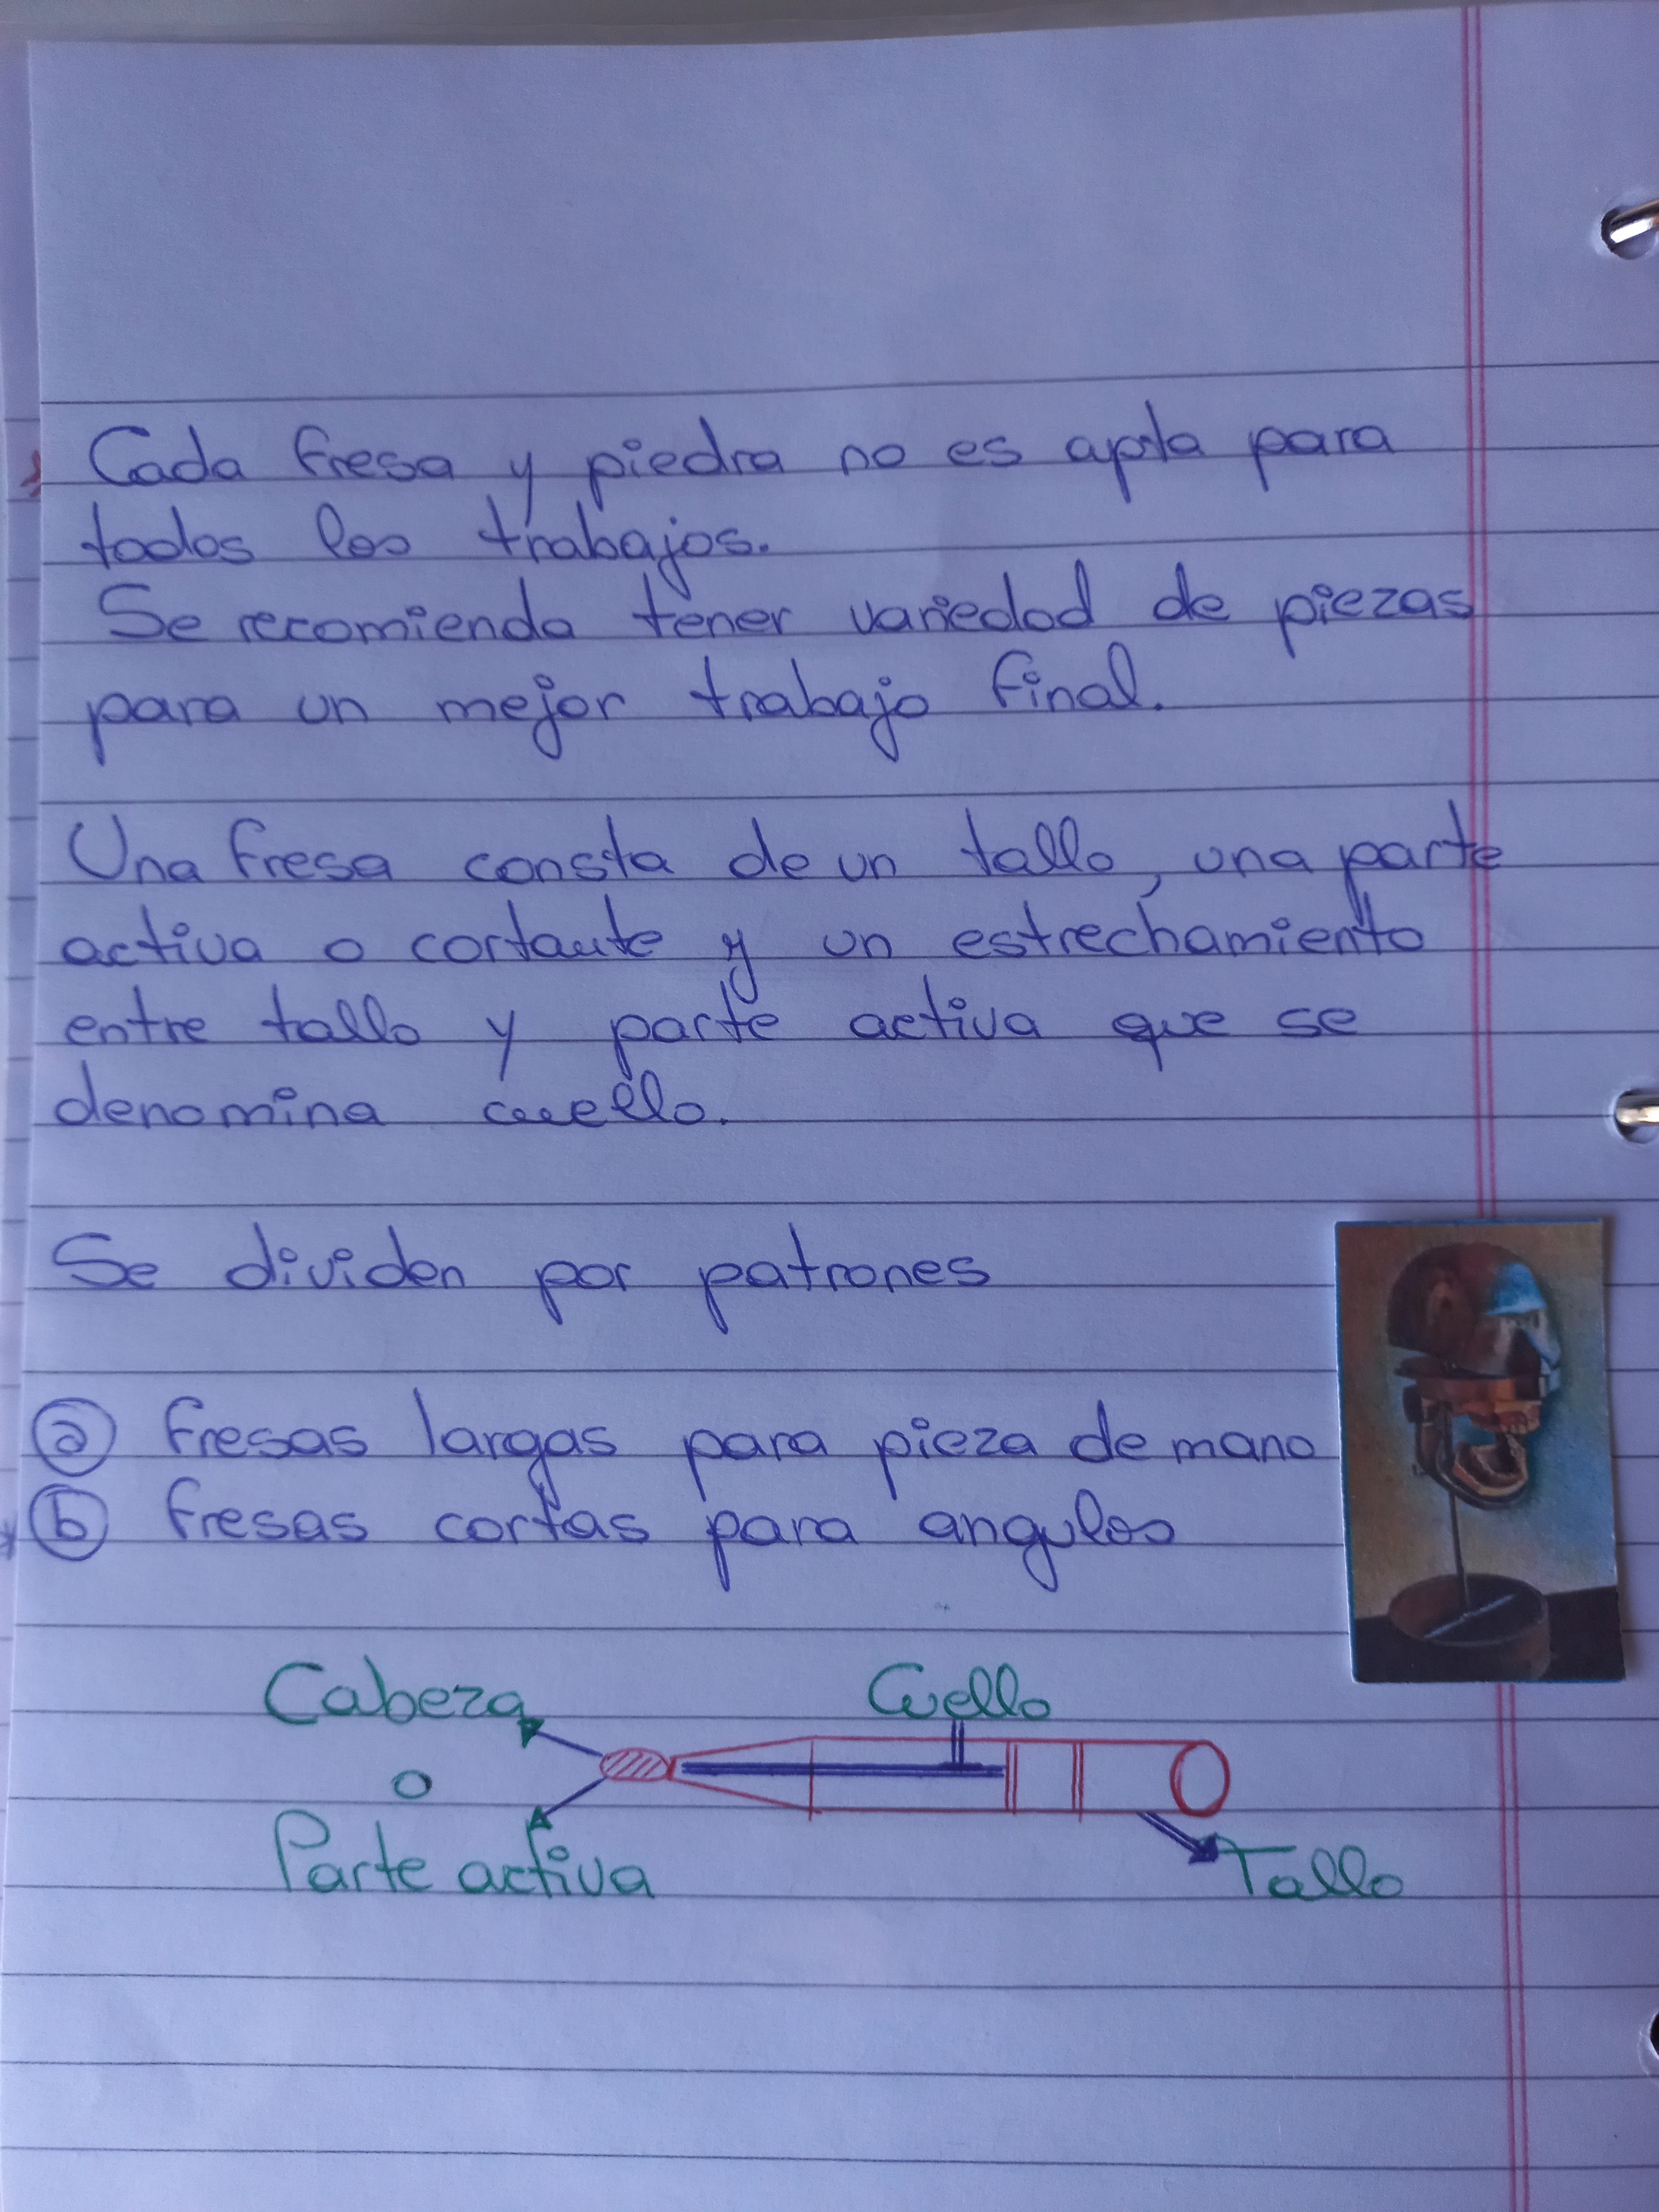 Cada fresa y piedra no es apta para
todos los trabajos.
Se recomienda tener variedad de piezas
para un mejor trabajo final.
Una fresa consta de un tallo, una parte
activa o cortante y un estrechamiento
entre tallo y parte activa que se
denomina cuello.
Se dividen por patrones
a fresas largas para pieza de mano
b fresas cortas para angulos
Cabeza
Cuello
o
Parte activa
Tallo